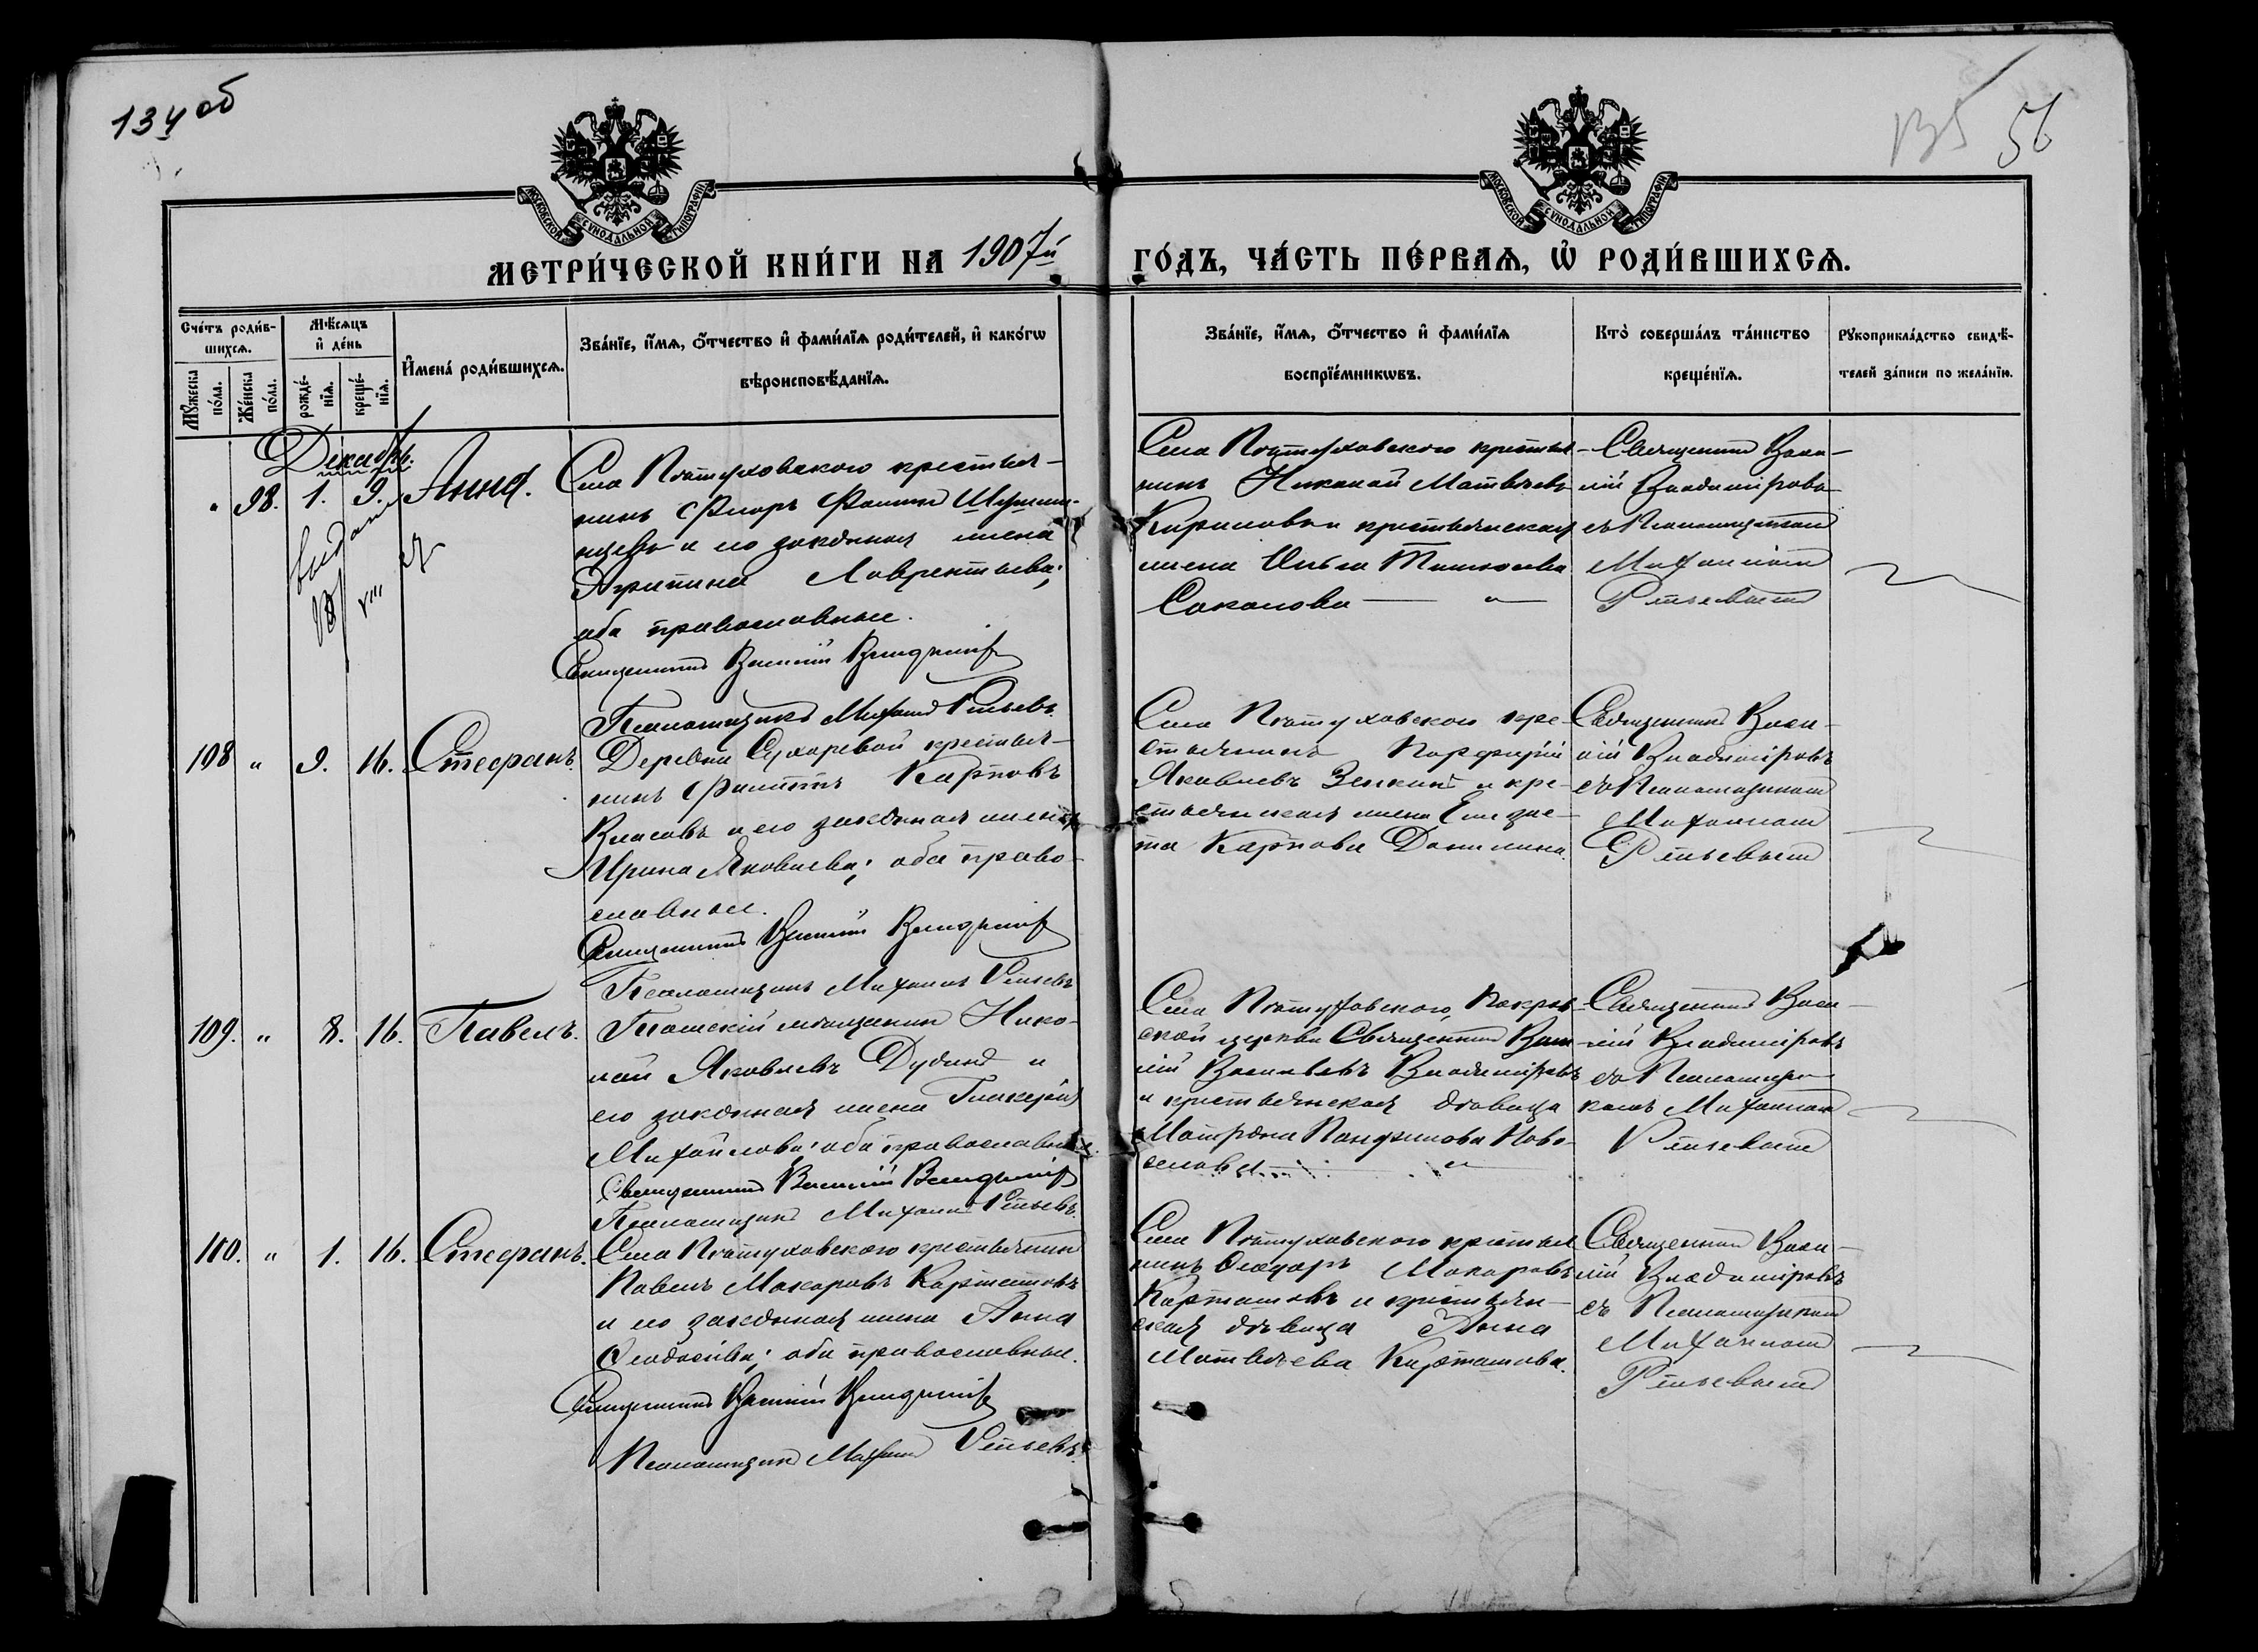 134 об
135 56
МОСКОВСКОЙ СѴНОДАЛЬНОЙ ТИПОГРАФІИ
МОСКОВСКОЙ СѴНОДАЛЬНОЙ ТИПОГРАФІИ
МЕТРИ́ЧЕСКОЙ КНИ́ГИ НА 1907й ГО́ДЪ, ЧА́СТЬ ПЕ́РВАѦ, Ѡ҆ РОДИ́ВШИХСѦ.
Сче́тъ роди́в-
шихсѧ.
Мꙋ́жеска по́ла.
Же́нска по́ла.
Мѣ́сѧцъ
и҆ де́нь
рожде́-
нїѧ.
креще́-
нїѧ.
И҆мена̀ роди́вшихсѧ.
Зва́нїе, и҆́мѧ, ѻ҆́тчество и҆ фами́лїѧ роди́телей, и҆ како́гѡ
вѣроисповѣ́данїѧ.
Зва́нїе, и҆́мѧ, ѻ҆́тчество и҆ фами́лїѧ
воспрїе́мникѡвъ.
Кто̀ соверша́лъ та́инство
креще́нїѧ.
Рꙋкоприкла́дство свидѣ́-
телей за́писи по жела́нїю.
Декабрь.
" 98. 1. 9. Анна.
Села Пѣтуховскаго крестья-
нинъ Флоръ Фоминъ
и его законная жена
Агрипина Лаврентьева;
оба православные.
Священникъ Василій Владиміровъ
Псаломщикъ Михаилъ
Села Пѣтуховскаго крестья-
нинъ Николай Матвѣевъ
и крестьянская
жена
Соколова "
Священникъ Васи-
лій Владиміровъ
съ Псаломщикомъ
Михаиломъ
108 " 9. 16. Стефанъ.
Деревни Сухоревой крестья-
нинъ Филиппъ Карповъ
Власовъ и его законная жена
Ирина Яковлева; оба право-
славные.
Священникъ Василій Владиміровъ
Псаломщикъ Михаилъ
Села Пѣтуховскаго кре-
стьянинъ Порфирій
Яковлевъ Зенкинъ и кре-
стьянская жена Елизаве-
та Карпова Данилина.
Священникъ Васи-
лій Владиміровъ
съ Псаломщикомъ
Михаиломъ
109. " 8. 16. Павелъ.
Томскій мѣщанинъ Нико-
лай Яковлевъ Дубинъ и
его законная жена Гликерія
Михайлова; оба православные.
Священникъ Василій Владиміровъ
Псаломщикъ Михаилъ
Села Пѣтуховскаго, Покров-
ской церкви Священникъ Васи-
лій Васильевъ Владиміровъ
и крестьянская дѣвица
Матрона Панфилова Ново-
селова "
Священникъ Васи-
лій Владиміровъ
съ Псаломщи-
комъ Михаиломъ
110. " 1. 16. Стефанъ.
Села Пѣтуховскаго крестьянинъ
Павелъ Макаровъ Карташовъ
и его законная жена Анна
Ѳеодосіева; оба православные.
Священникъ Василій Владиміровъ
Псаломщикъ Михаилъ
Села Пѣтуховскаго крестья
нинъ Ѳеодоръ Макаровъ
Карташовъ и крестьян-
ская дѣвица Анна
Матвѣева Карташова.
Священникъ Васи-
лій Владиміровъ
съ Псаломщикомъ
Михаиломъ